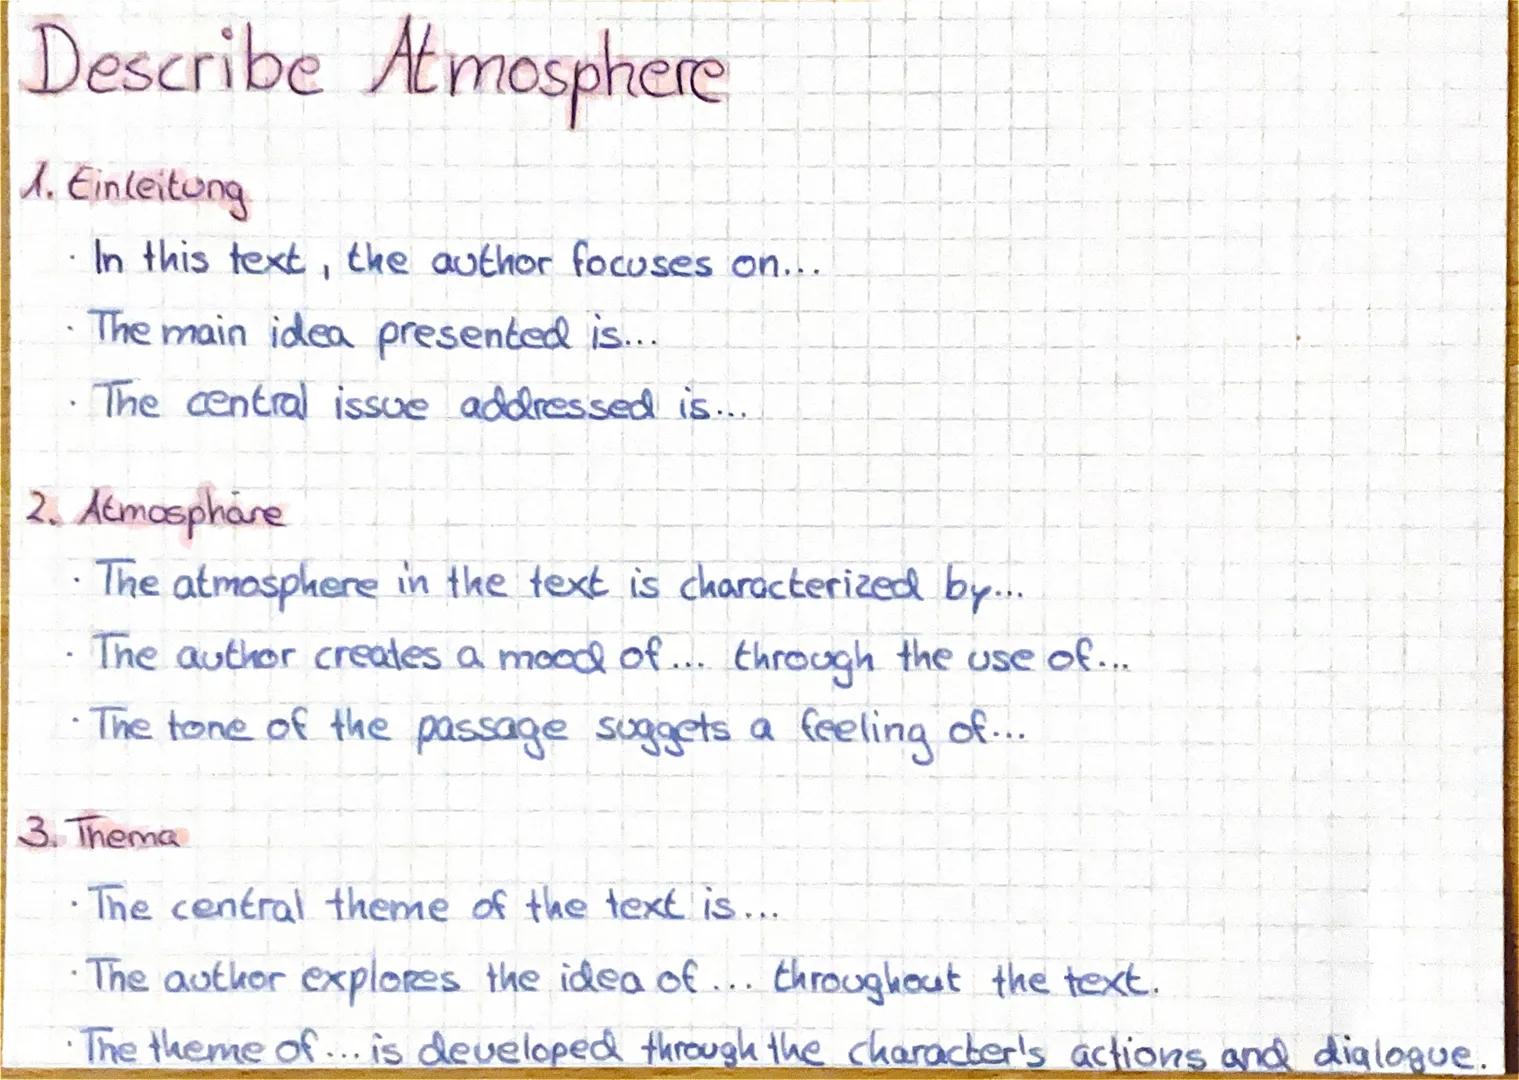 Describe Atmosphere
1. Einleitung
· In this text, the author focuses on...
· The main idea presented is...
· The central issue addressed is...
2. Atmosphäre
· The atmosphere in the text is characterized by...
· The author creates a mood of... through the use of...
· The tone of the passage suggets a feeling of...
3. Thema
· The central theme of the text is...
· The author explores the idea of... throughout the text.
· The theme of... is developed through the character's actions and dialogue.